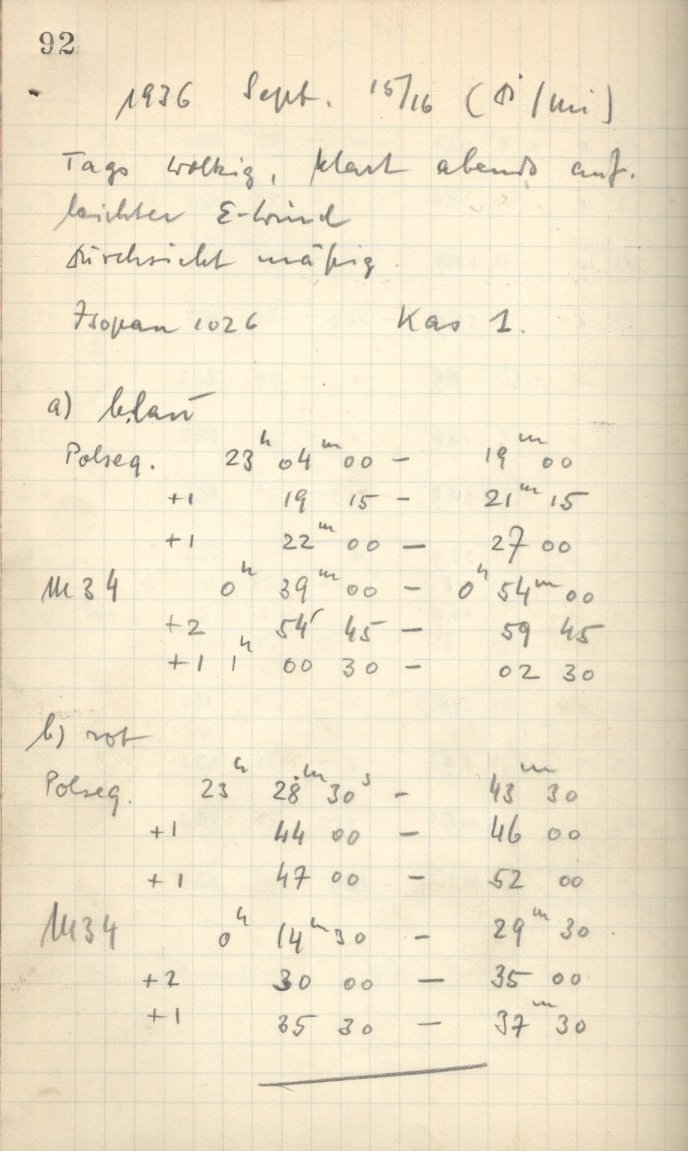 92
1936 Sept. 15/16 (Di/Mi)
Tags wolkig, klart abends auf.
leichter E-Wind
Durchsicht mäßig
Isopan 1026 Kas 1.
a) blau
Polseq. 23h 04m 00 - 19m 00
+1 19 15 - 21m 15
+1 22m 00 - 27 00
M34 0h 39m 00 - 0h 54m 00
+2 54 45 - 59 45
+1 1h 00 30 - 02 30
b) rot
Polseq. 23h 28m 30s - 43m 30
+1 44 00 - 46 00
+1 47 00 - 52 00
M34 0h 14m 30 - 29m 30
+2 30 00 - 35 00
+1 35 30 - 37m 30